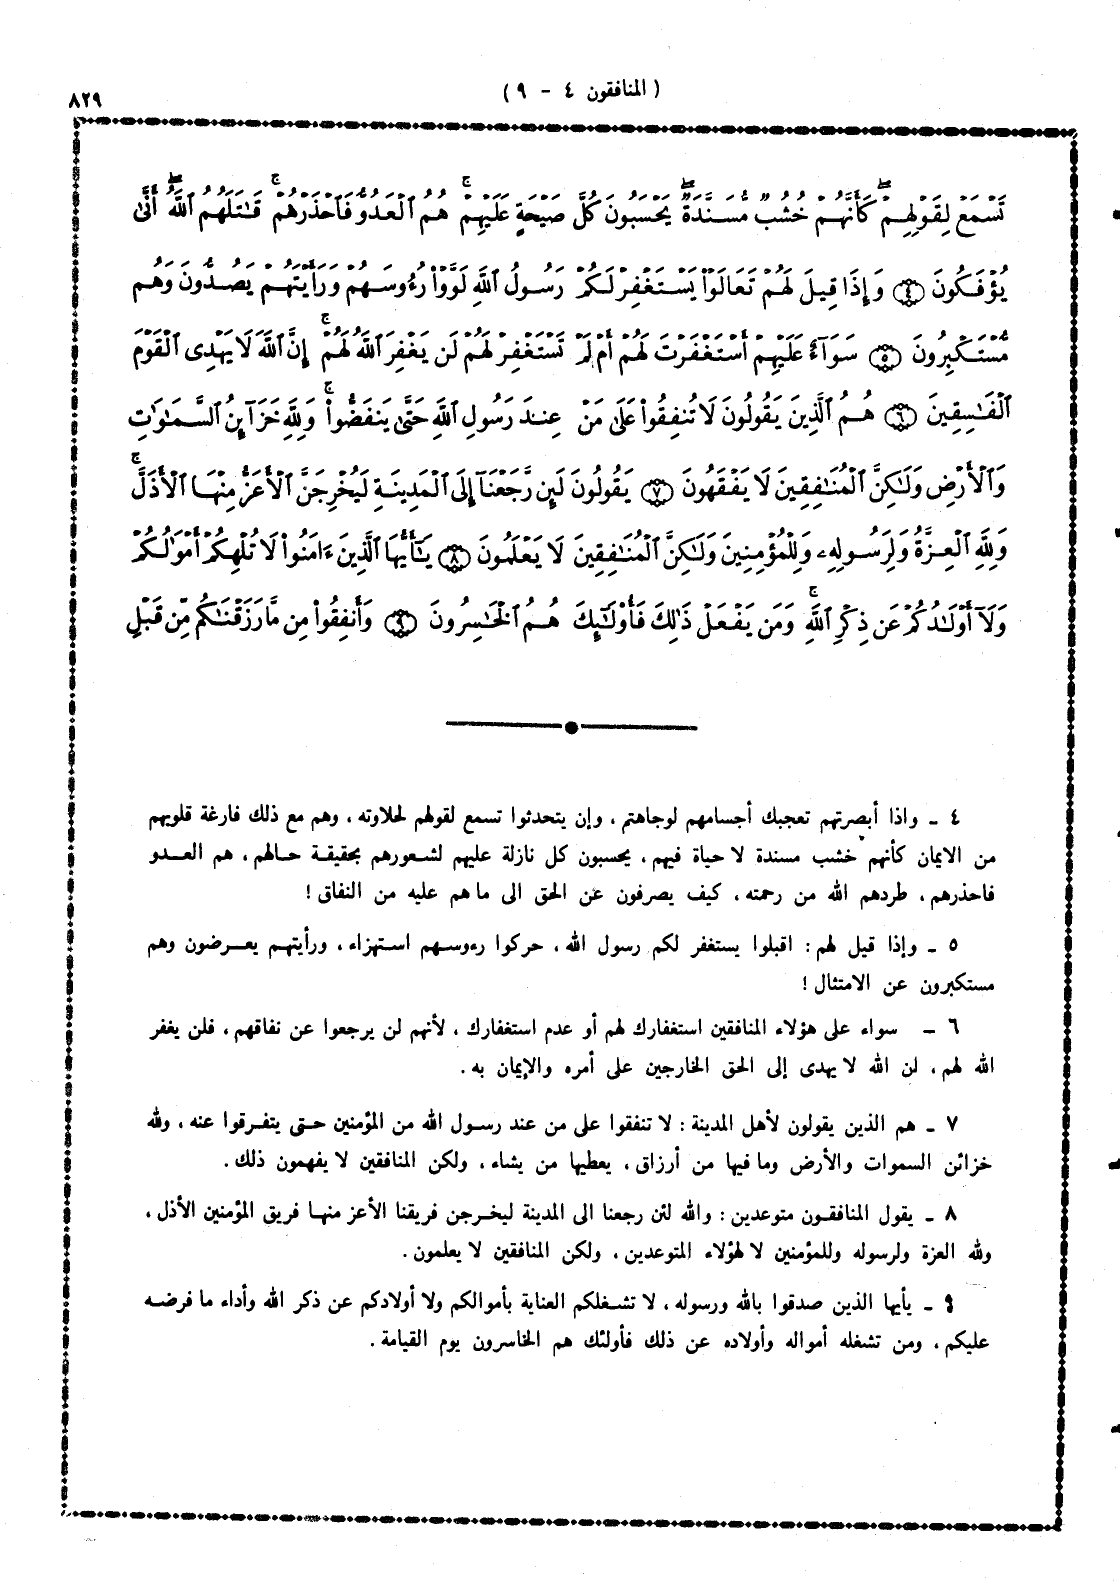 (المنافقون ٤ - ٩)
٨٢٩
تَسْمَعْ لِقَوْلِهِمْ ۖ كَأَنَّهُمْ خُشُبٌ مُّسَنَّدَةٌ ۖ يَحْسَبُونَ كُلَّ صَيْحَةٍ عَلَيْهِمْ ۚ هُمُ ٱلْعَدُوُّ فَٱحْذَرْهُمْ ۚ قَـٰتَلَهُمُ ٱللَّهُ ۖ أَنَّىٰ
يُؤْفَكُونَ ٤ وَإِذَا قِيلَ لَهُمْ تَعَالَوْا۟ يَسْتَغْفِرْ لَكُمْ رَسُولُ ٱللَّهِ لَوَّوْا۟ رُءُوسَهُمْ وَرَأَيْتَهُمْ يَصُدُّونَ وَهُم
مُّسْتَكْبِرُونَ ٥ سَوَآءٌ عَلَيْهِمْ أَسْتَغْفَرْتَ لَهُمْ أَمْ لَمْ تَسْتَغْفِرْ لَهُمْ لَن يَغْفِرَ ٱللَّهُ لَهُمْ ۚ إِنَّ ٱللَّهَ لَا يَهْدِى ٱلْقَوْمَ
ٱلْفَـٰسِقِينَ ٦ هُمُ ٱلَّذِينَ يَقُولُونَ لَا تُنفِقُوا۟ عَلَىٰ مَنْ عِندَ رَسُولِ ٱللَّهِ حَتَّىٰ يَنفَضُّوا۟ ۗ وَلِلَّهِ خَزَآئِنُ ٱلسَّمَـٰوَٰتِ
وَٱلْأَرْضِ وَلَـٰكِنَّ ٱلْمُنَـٰفِقِينَ لَا يَفْقَهُونَ ٧ يَقُولُونَ لَئِن رَّجَعْنَآ إِلَى ٱلْمَدِينَةِ لَيُخْرِجَنَّ ٱلْأَعَزُّ مِنْهَا ٱلْأَذَلَّ ۚ
وَلِلَّهِ ٱلْعِزَّةُ وَلِرَسُولِهِۦ وَلِلْمُؤْمِنِينَ وَلَـٰكِنَّ ٱلْمُنَـٰفِقِينَ لَا يَعْلَمُونَ ٨ يَـٰٓأَيُّهَا ٱلَّذِينَ ءَامَنُوا۟ لَا تُلْهِكُمْ أَمْوَٰلُكُمْ
وَلَآ أَوْلَـٰدُكُمْ عَن ذِكْرِ ٱللَّهِ ۚ وَمَن يَفْعَلْ ذَٰلِكَ فَأُو۟لَـٰٓئِكَ هُمُ ٱلْخَـٰسِرُونَ ٩ وَأَنفِقُوا۟ مِن مَّا رَزَقْنَـٰكُم مِّن قَبْلِ
٤ ـ واذا أبصرتهم تعجبك أجسامهم لوجاهتم، وإن يتحدثوا تسمع لقولهم لحلاوته، وهم مع ذلك فارغة قلوبهم
من الايمان كأنهم خشب مسندة لا حياة فيهم، يحسبون كل نازلة عليهم لشعورهم بحقيقة حالهم، هم العدو
فاحذرهم، طردهم الله من رحمته، كيف يصرفون عن الحق الى ما هم عليه من النفاق!
٥ ـ وإذا قيل لهم: اقبلوا يستغفر لكم رسول الله، حركوا رءوسهم استهزاء، ورأيتهم يعرضون وهم
مستكبرون عن الامتثال!
٦ ـ سواء على هؤلاء المنافقين استغفارك لهم أو عدم استغفارك، لأنهم لن يرجعوا عن نفاقهم، فلن يغفر
الله لهم، لن الله لا يهدى إلى الحق الخارجين على أمره والإيمان به.
٧ ـ هم الذين يقولون لأهل المدينة: لا تنفقوا على من عند رسول الله من المؤمنين حتى يتفرقوا عنه، ولله
خزائن السموات والأرض وما فيها من أرزاق، يعطيها من يشاء، ولكن المنافقين لا يفهمون ذلك.
٨ ـ يقول المنافقون متوعدين: والله لئن رجعنا الى المدينة ليخرجن فريقنا الأعز منها فريق المؤمنين الأذل،
ولله العزة ولرسوله وللمؤمنين لا لهؤلاء المتوعدين، ولكن المنافقين لا يعلمون.
٩ ـ يأيها الذين صدقوا بالله ورسوله، لا تشغلكم العناية بأموالكم ولا أولادكم عن ذكر الله وأداء ما فرضه
عليكم، ومن تشغله أمواله وأولاده عن ذلك فأولئك هم الخاسرون يوم القيامة.